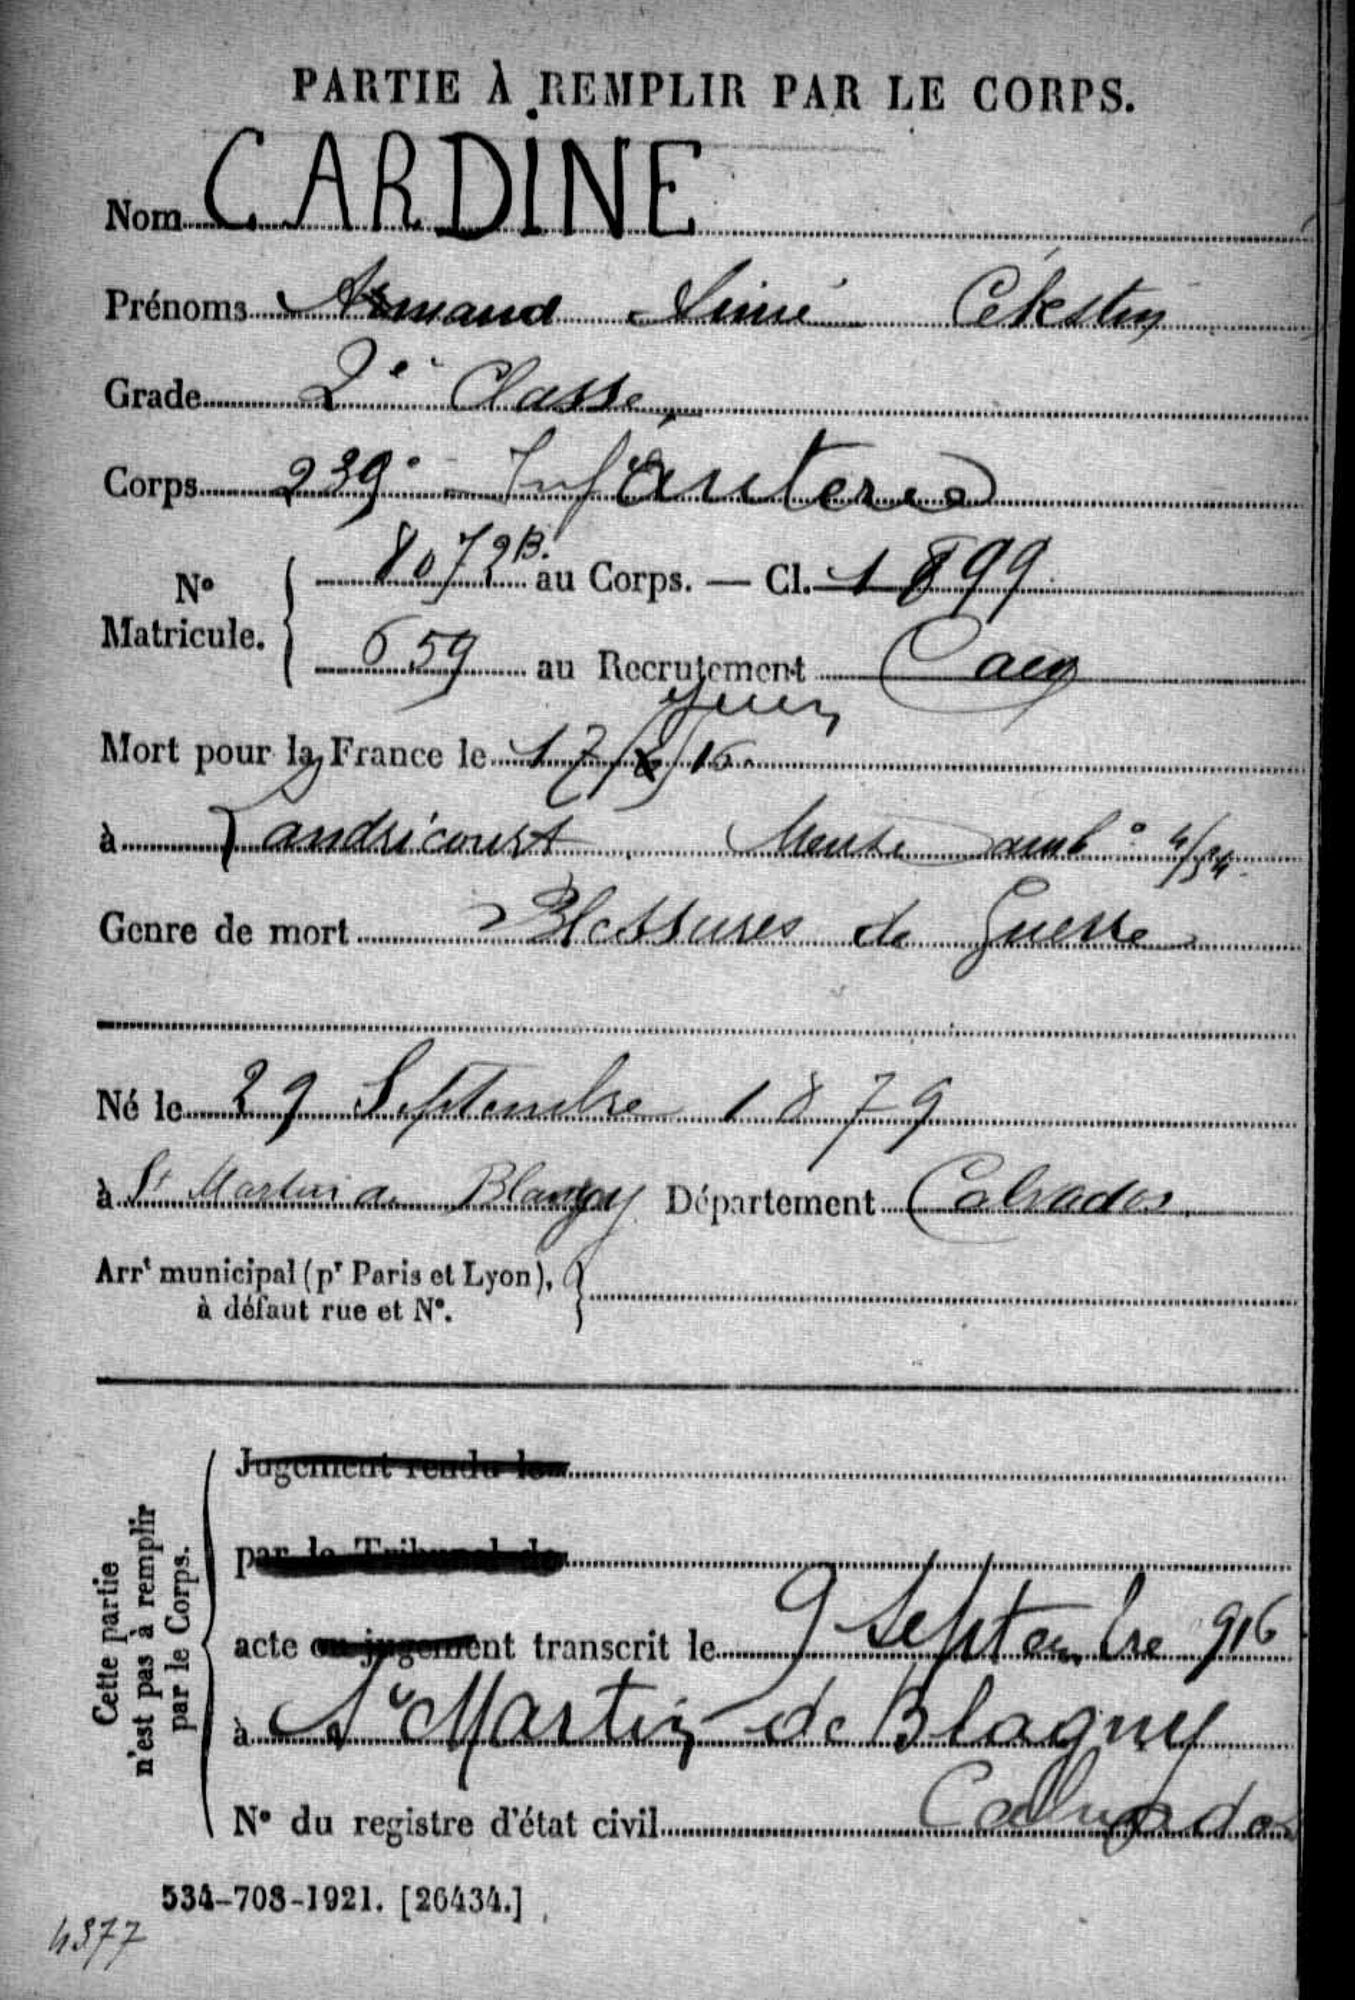 PARTIE À REMPLIR PAR LE CORPS.
Nom CARDINE
Prénoms Armand Aimé Célestin
Grade 2e Classe
Corps 239e Infanterie
No Matricule. 8072B. au Corps. — Cl. 1899
659 au Recrutement Caen
Juin
Mort pour la France le 17/6/16
à Landricourt Meuse amb ce 4/54
Genre de mort Blessures de Guerre
Né le 29 Septembre 1879
à St Martin de Blangy Département Calvados
Arrt municipal (pr Paris et Lyon),
à défaut rue et No.
Cette partie n'est pas à remplir par le Corps.
Jugement rendu le
par le Tribunal de
acte ou jugement transcrit le 9 Septembre 916
à St Martin de Blagny
No du registre d'état civil Calvados
534-708-1921. [26434.]
4377